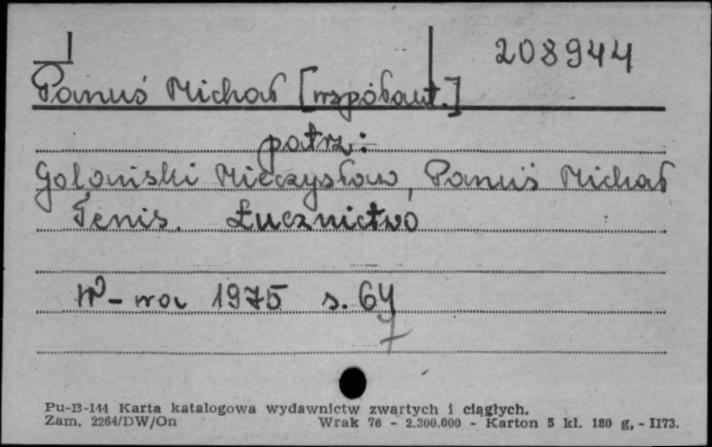 I 208944
Panuś Michał [współaut.]
patrz:
Golański Mieczysław, Panuś Michał
Tenis. Łucznictwo
W-wa 1975 s. 64
7
Pu-B-144 Karta katalogowa wydawnictw zwartych i ciągłych.
Zam. 2264/DW/On Wrak 76 - 2.300.000 - Karton 5 kl. 180 g, - II73.